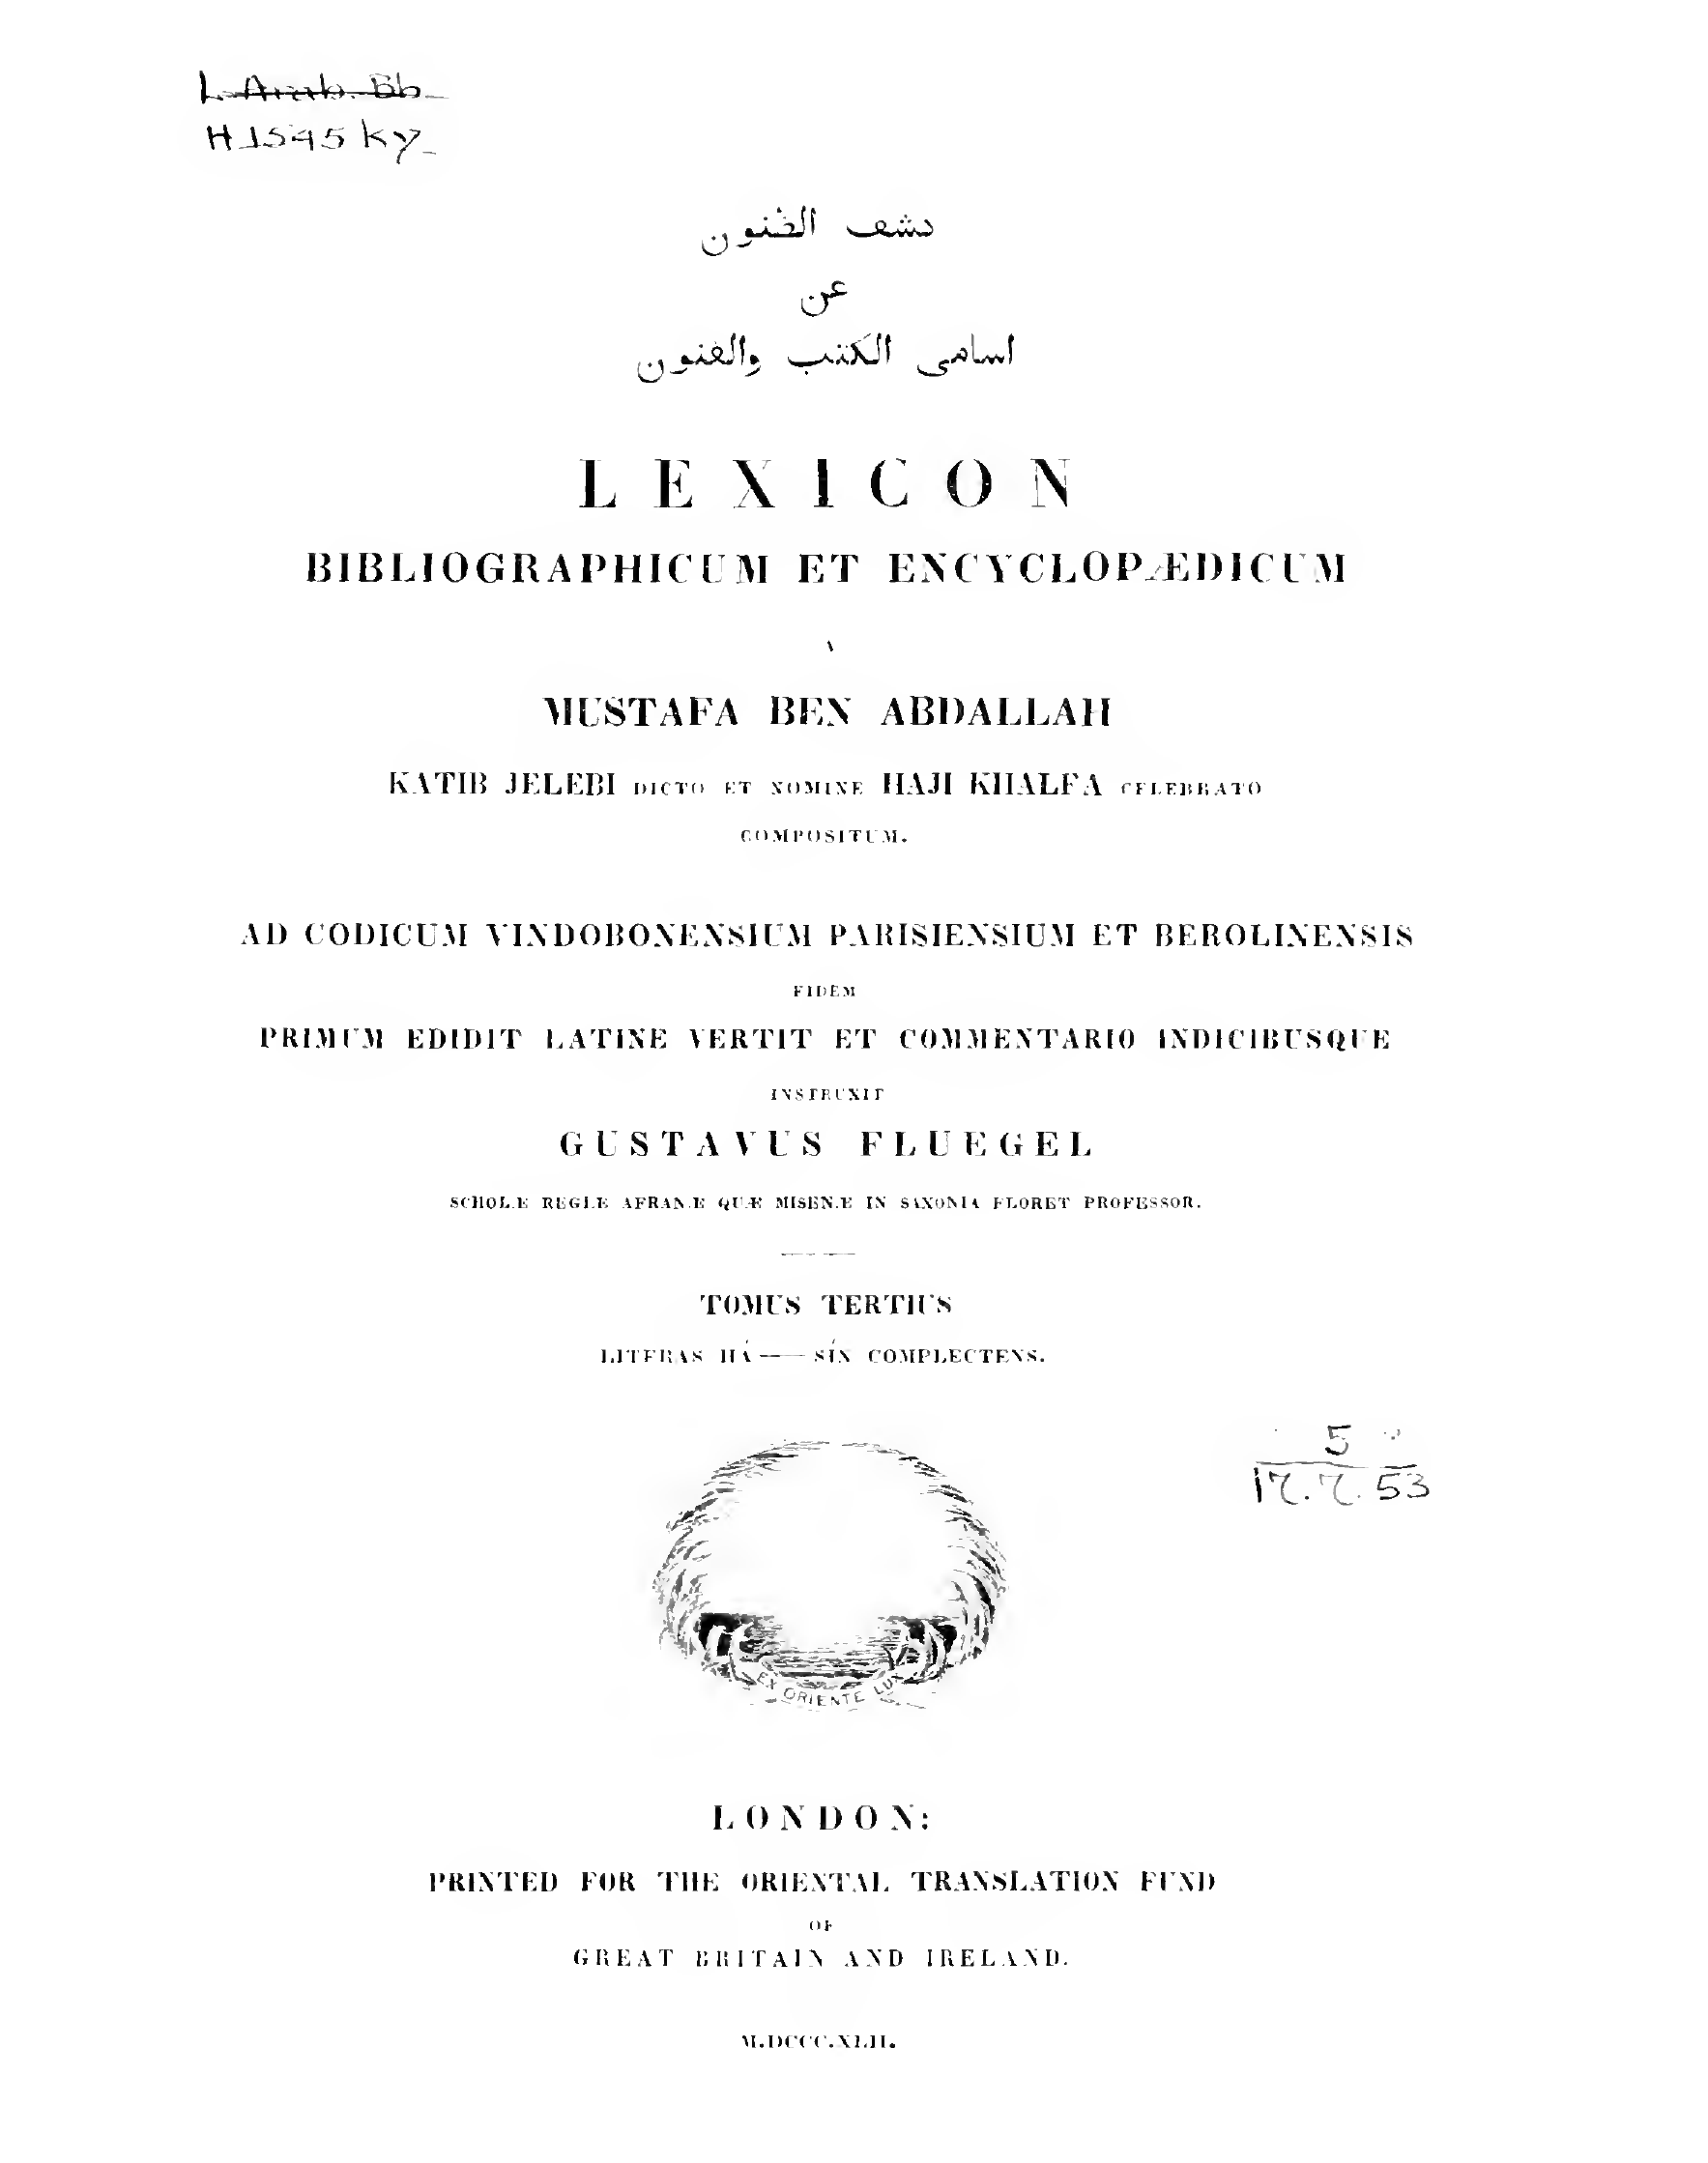 L. Arab. Bb
H1545 ky
كشف الظنون
عن
اسامى الكتب والفنون
LEXICON
BIBLIOGRAPHICUM ET ENCYCLOPÆDICUM
A
MUSTAFA BEN ABDALLAH
KATIB JELEBI DICTO ET NOMINE HAJI KHALFA CELEBRATO
COMPOSITUM.
AD CODICUM VINDOBONENSIUM PARISIENSIUM ET BEROLINENSIS
FIDEM
PRIMUM EDIDIT LATINE VERTIT ET COMMENTARIO INDICIBUSQUE
INSTRUXIT
GUSTAVUS FLUEGEL
SCHOLÆ REGIÆ AFRANÆ QUÆ MISENÆ IN SAXONIA FLORET PROFESSOR.
TOMUS TERTIUS
LITERAS HÁ — SÍN COMPLECTENS.
5
17.7.53
EX ORIENTE LUX
LONDON:
PRINTED FOR THE ORIENTAL TRANSLATION FUND
OF
GREAT BRITAIN AND IRELAND.
M.DCCC.XLII.